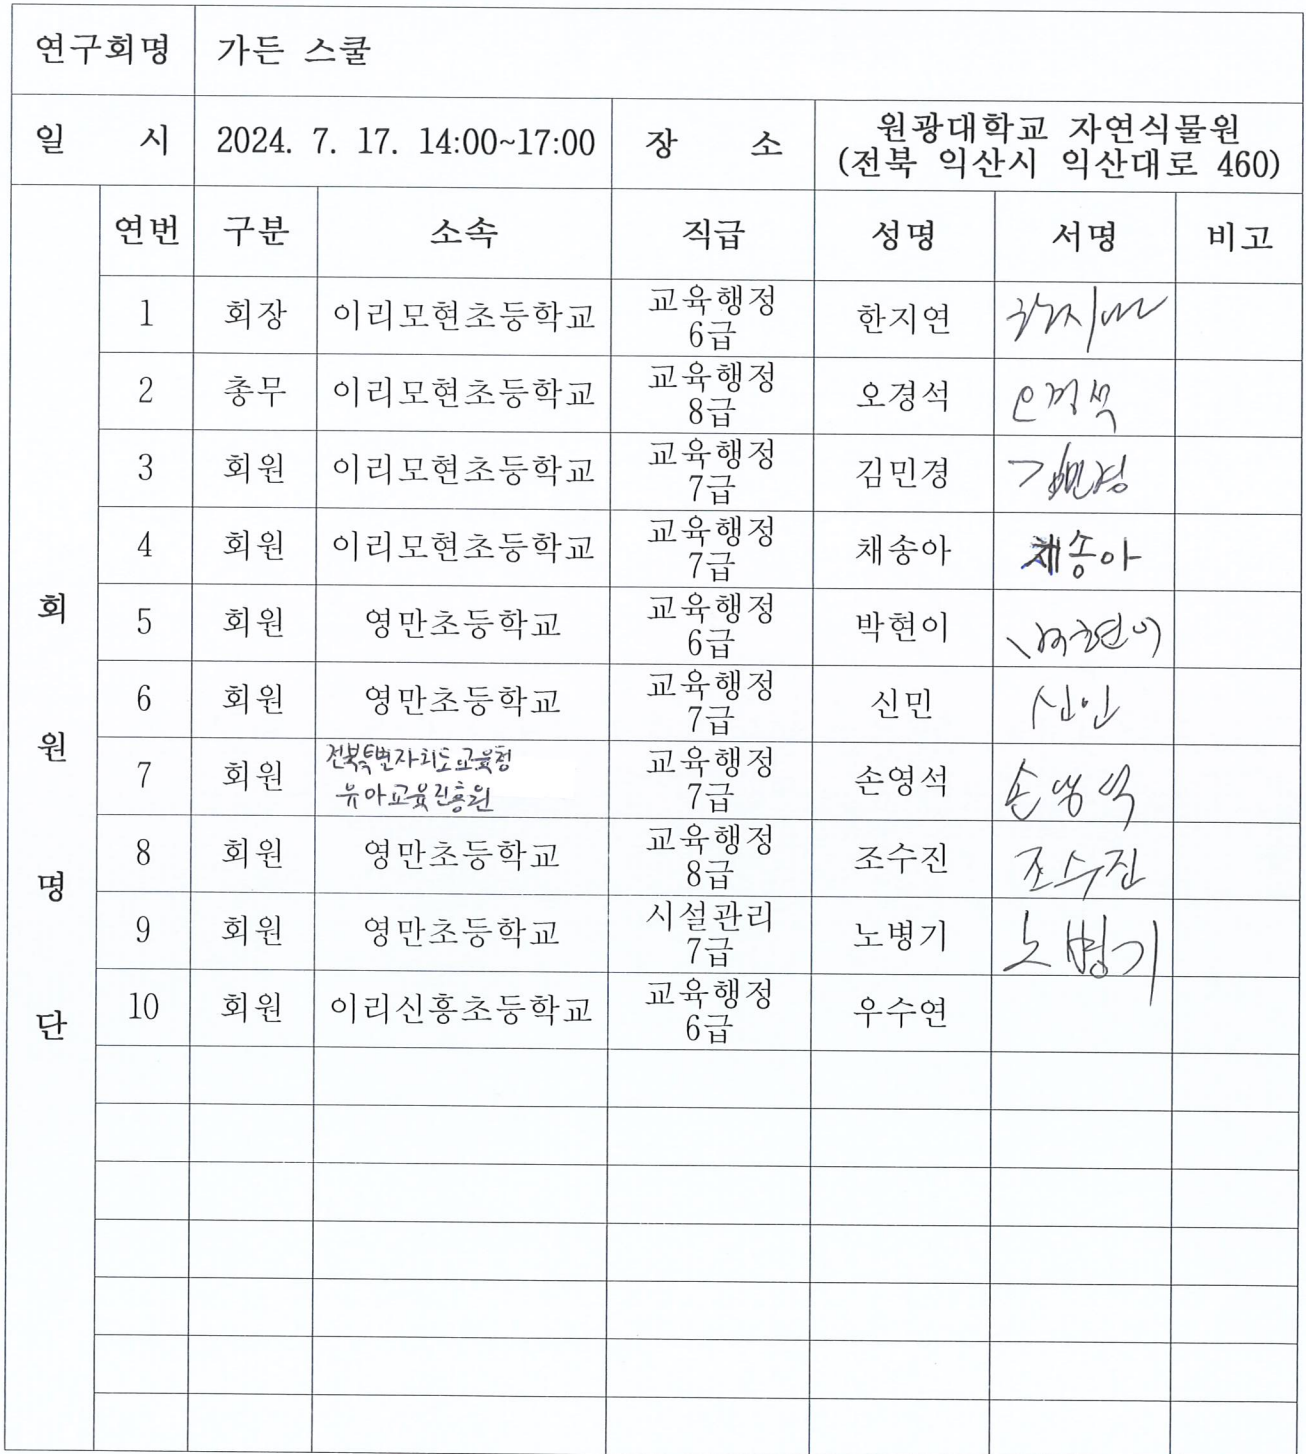 연구회명 가든 스쿨
일 시 2024. 7. 17. 14:00~17:00 장 소 원광대학교 자연식물원
(전북 익산시 익산대로 460)
회원명단
연번 구분 소속 직급 성명 서명 비고
1 회장 이리모현초등학교 교육행정 6급 한지연 한지연
2 총무 이리모현초등학교 교육행정 8급 오경석 오경석
3 회원 이리모현초등학교 교육행정 7급 김민경 김민경
4 회원 이리모현초등학교 교육행정 7급 채송아 채송아
5 회원 영만초등학교 교육행정 6급 박현이 박현이
6 회원 영만초등학교 교육행정 7급 신민 신민
7 회원 전북특별자치도교육청 유아교육진흥원 교육행정 7급 손영석 손영석
8 회원 영만초등학교 교육행정 8급 조수진 조수진
9 회원 영만초등학교 시설관리 7급 노병기 노병기
10 회원 이리신흥초등학교 교육행정 6급 우수연